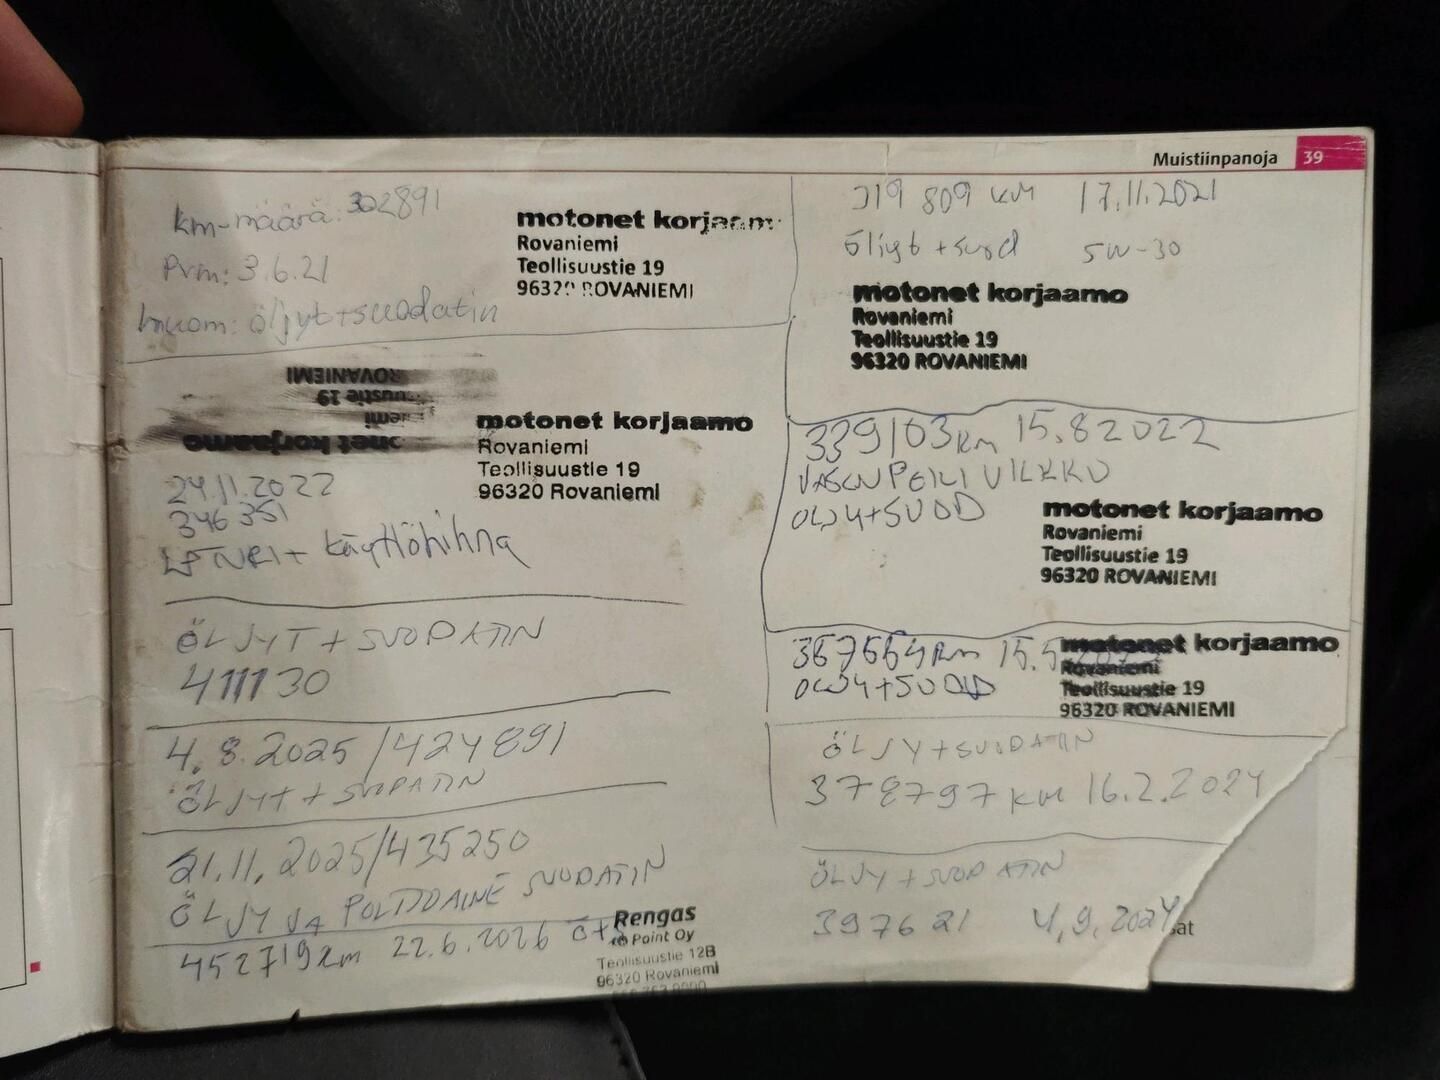 Muistiinpanoja 39
km-määrä: 302891
Pvm: 3.6.21
öljyt+suodatin
motonet korjaam
Rovaniemi
Teollisuustie 19
ROVANIEMI
ROVANIEMI
19
korjaamo
motonet korjaamo
Rovaniemi
Teollisuustie 19
96320 Rovaniemi
24.11.2022
346351
+ käyttöhihna
ÖLJYT + SUODATIN
411130
4.8.2025 /424891
ÖLJYT + SUODATIN
21.11.2025/435250
ÖLJY JA POLTTOAINE SUODATIN
452719km 22.6.2026 Ö+S
Rengas
Point Oy
Teollisuustie 12B
96320 Rovaniemi
319 809 KM 17.11.2021
Öljyt + suod 5W-30
motonet korjaamo
Rovaniemi
Teollisuustie 19
96320 ROVANIEMI
339103km 15.8.2022
VASEN PEILI VILKKU
ÖLJY+SUOD
motonet korjaamo
Rovaniemi
Teollisuustie 19
96320 ROVANIEMI
367664km 15.5
ÖLJY+SUOD
motonet korjaamo
Rovaniemi
Teollisuustie 19
96320 ROVANIEMI
ÖLJY+SUODATIN
378797 KM 16.2.2024
ÖLJY + SUODATIN
397621 4.9.2024
sat